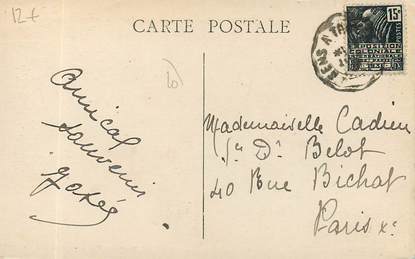 12 f
CARTE POSTALE
15c
EXPOSITION
COLONIALE
INTERNATIONALE
SENS A
Amical
souvenir
Mademoiselle Cadieu
Sce Dr Belot
40 Rue Bichat
Paris Xe